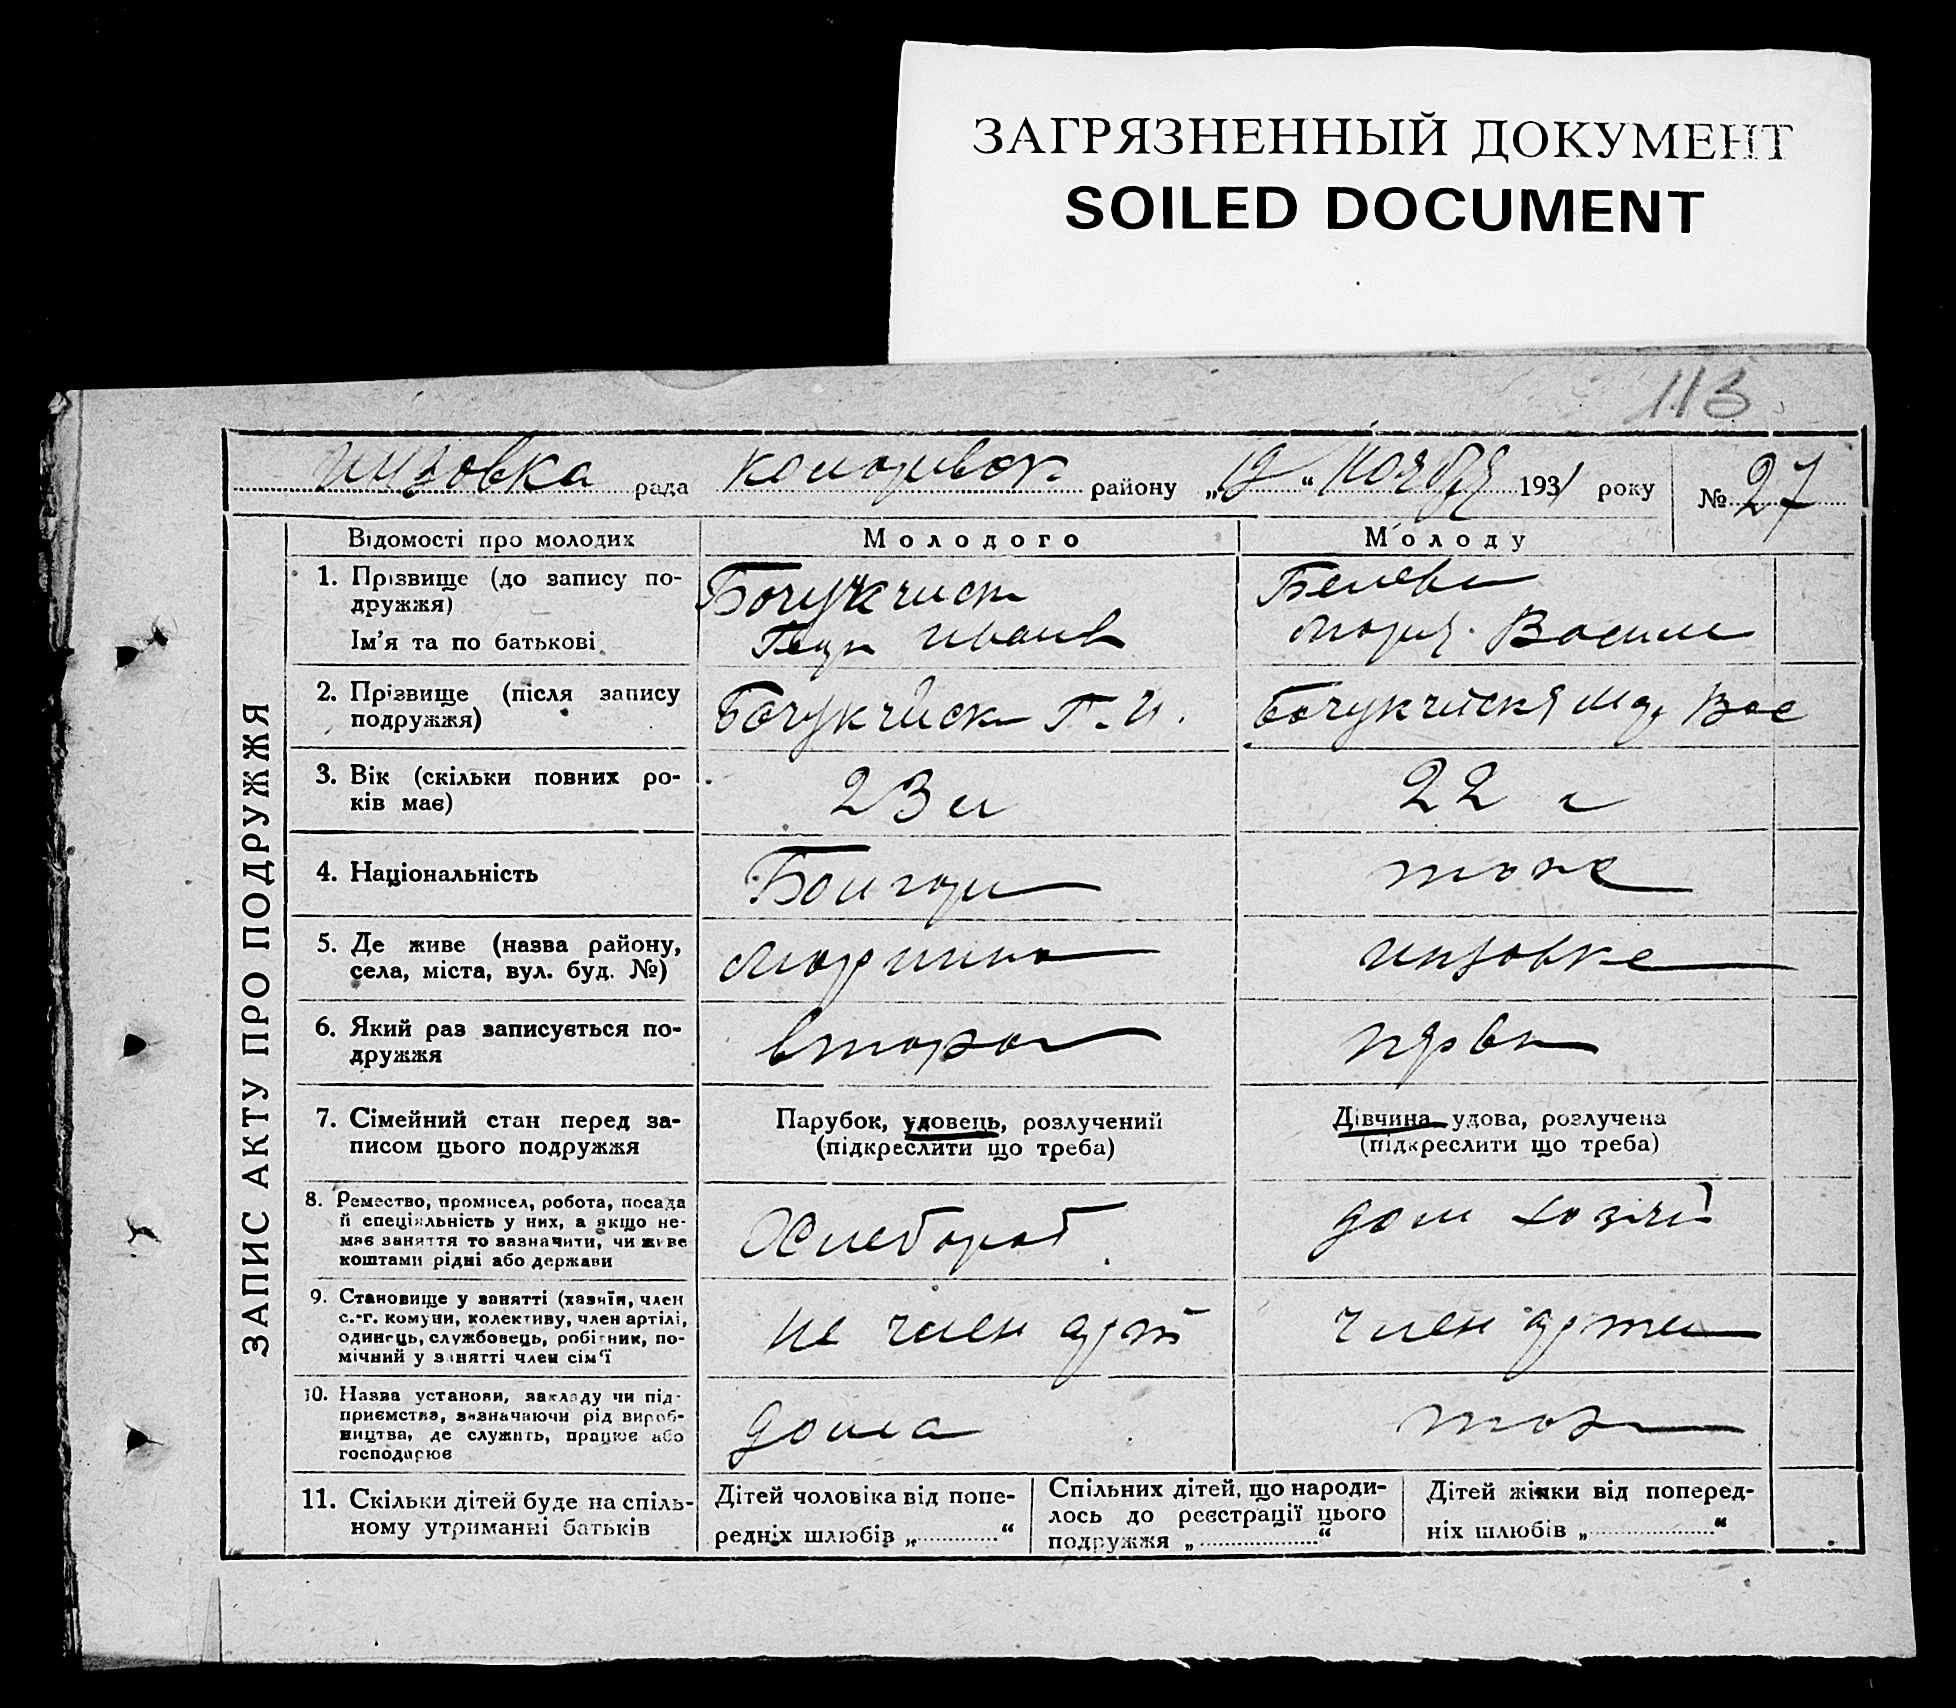 ЗАГРЯЗНЕННЫЙ ДОКУМЕНТ
SOILED DOCUMENT
113
Инзовка рада район у „12“ Ноябр 1931 року № 27
ЗАПИС АКТУ ПРО ПОДРУЖЖЯ
Відомості про молодих Молодого Молоду
1. Прізвище (до запису по-
дружжя)
Ім'я та по батькові
Иванв
Мария Васили
2. Прізвище (після запису
подружжя)
П. И.
Вас
3. Вік (скільки повних ро-
ків має)
23
22
4. Національність
Болгари
тоже
5. Де живе (назва району,
села, міста, вул. буд. №)
Инзовке
6. Який раз записується по-
дружжя
7. Сімейний стан перед за-
писом цього подружжя
Парубок, удовець, розлучений
(підкреслити що треба)
Дівчина удова, розлучена
(підкреслити що треба)
8. Ремество, промисел, робота, посада
й спеціяльність у них, а якщо не-
має заняття то зазначити, чи живе
коштами рідні або держави
Хлебороб
дом хозяй
9. Становище у занятті (хазяїн, член
с.-г. комуни, колективу, член артілі,
одинець, службовець, робітник, по-
мічний у занятті член сім'ї
не член арт
член артели
10. Назва установи, закладу чи під-
приємства, зазначаючи рід вироб-
ництва, де служить, працює або
господарює
дома
11. Скільки дітей буде на спіль-
ному утриманні батьків
Дітей чоловіка від попе-
редніх шлюбів „ “
Спільних дітей, що народи-
лось до реєстрації цього
подружжя „ “
Дітей жінки від поперед-
ніх шлюбів „ “